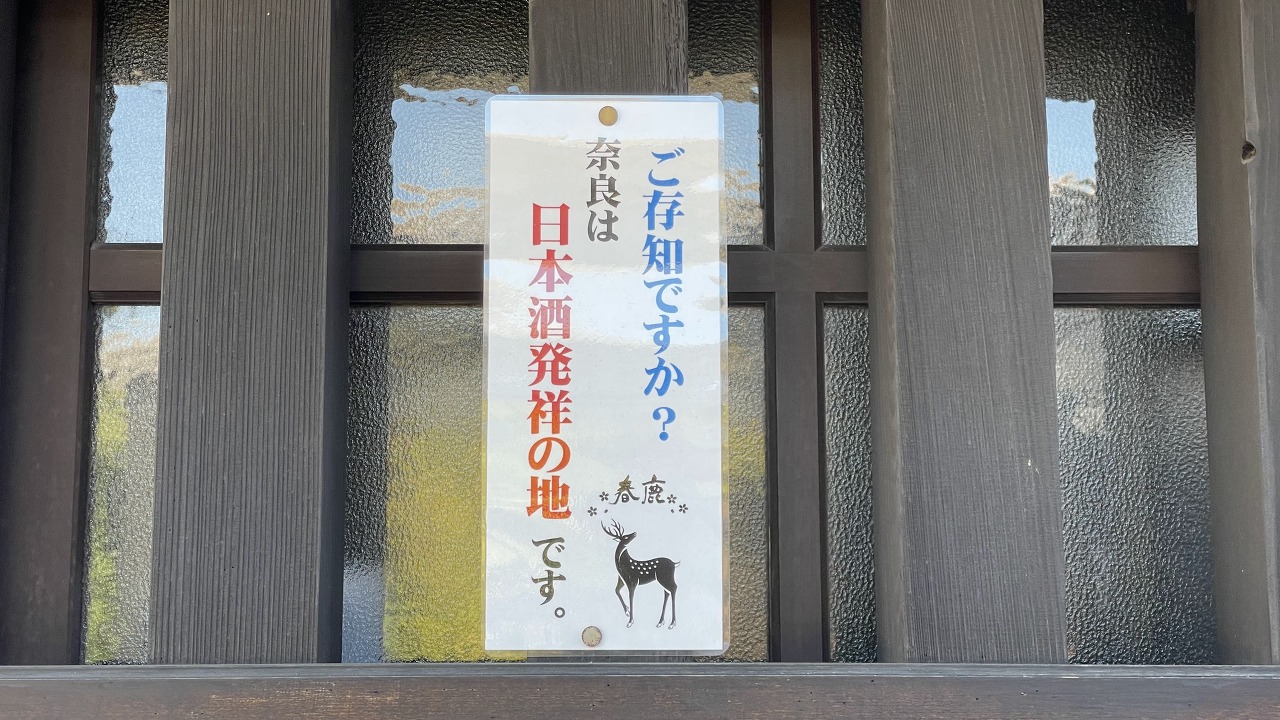 ご存知ですか？
奈良は
日本酒発祥の地です。
春鹿